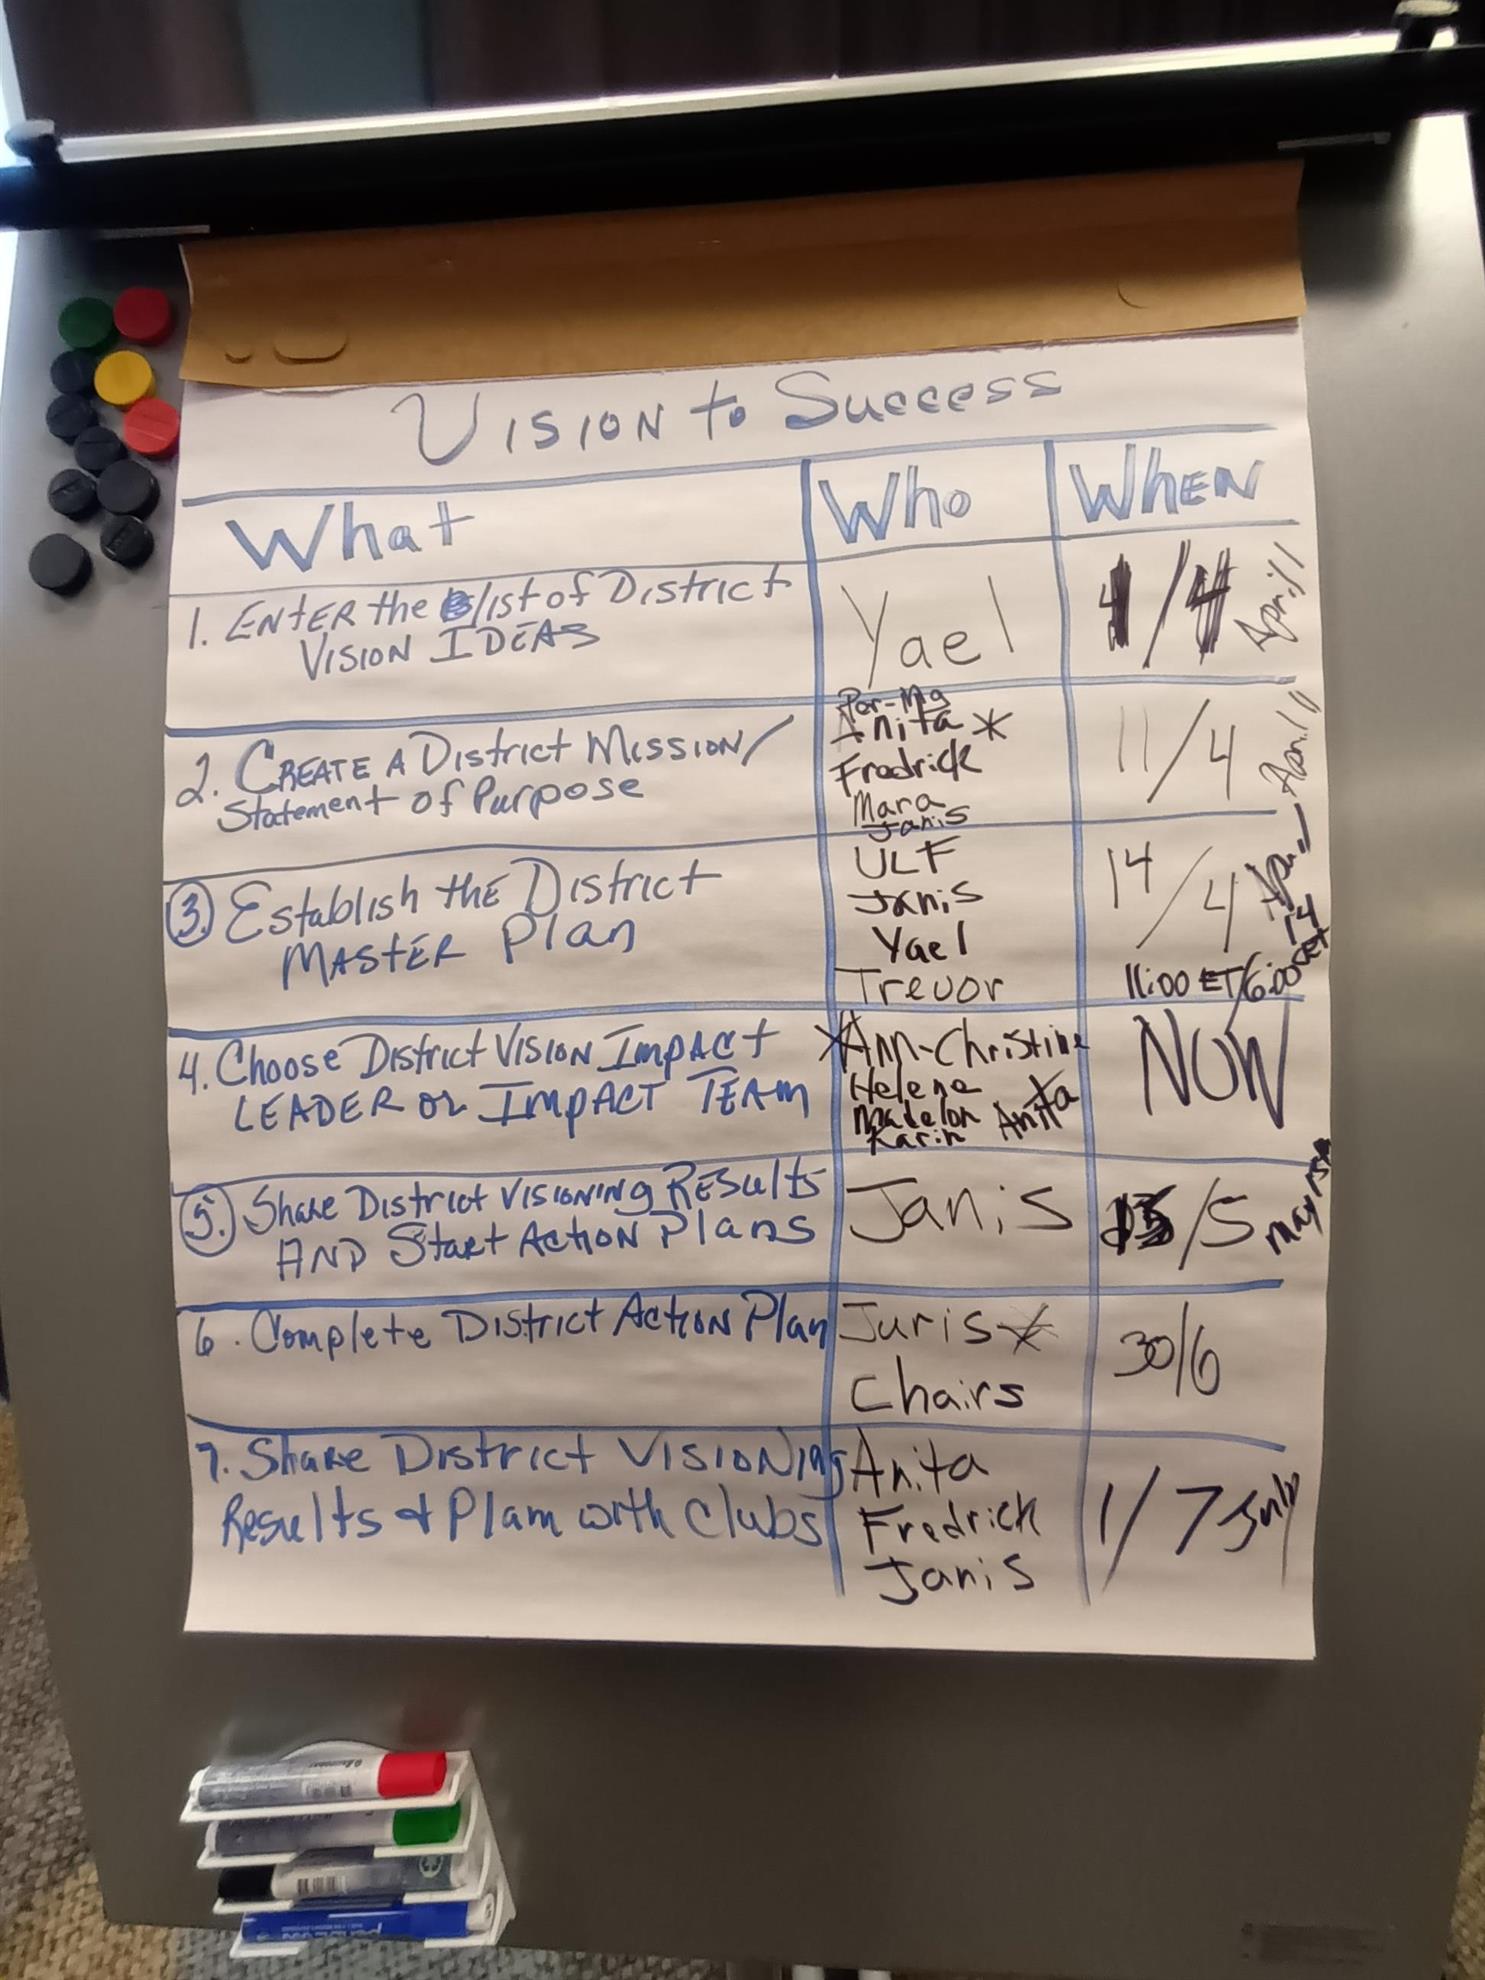 VISION to Success
What
Who
WHEN
1. ENTER the list of District
VISION IDEAS
Yael
/4
April
2. CREATE A District MISSION/
Statement of Purpose
Anita *
Fredrick
Mara
Janis
11/4
April
3. Establish the District
MASTER Plan
ULF
Janis
Yael
Trevor
14/4
April
14
11:00 ET/6:00
4. Choose District VISION IMPACT
LEADER or IMPACT TEAM
*Ann-Christine
Helene
Madelon Anita
Karin
NOW
5. Share District VISIONING RESults
AND START ACTION Plans
Janis
15/5
May 15
6. Complete DISTRICT ACTION Plan
Juris *
Chairs
30/6
7. Share District VISIONing
Results & Plam with Clubs
Anita
Fredrick
Janis
1/7 July